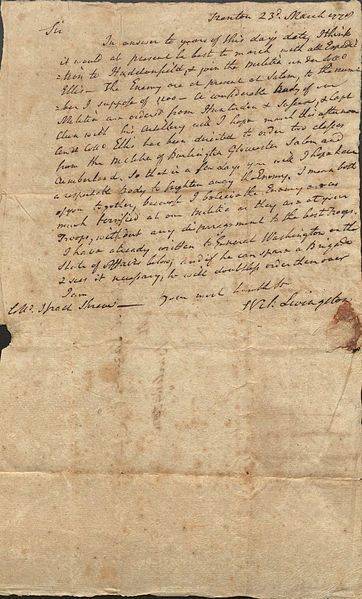 Trenton 23d. March 1778
Sir
In answer to yours of this days date, I think
it would at present be best to march with all Expedi
tion to Haddonfield, & join the Militia under Coll.
Ellis— The Enemy are at present at Salem, to the num
ber I suppose of 1500— A considerable Body of our
Militia are ordered from Hunterdon & Sussex, & Capt
Clun with his Artillery will I hope march this afternoon
and Coll. Ellis has been directed to order two classes
from the Militia of Burlington Gloucester Salem and
Cumberland. So that in a few days you will I hope have
a respectable Body to frighten away the Enemy, I mean both
of you together, because I believe the Enemy are as
much terrified at our Militia as they are at your
Troops, without any disparagement to the best troops,
I have already written to General Washington on the
State of Affairs below, and if he can spare a Brigade
& sees it necessary, he will doubtless order them over
I am
Your most humble St
Coll. Israel Shreve—
Wil. Livingston